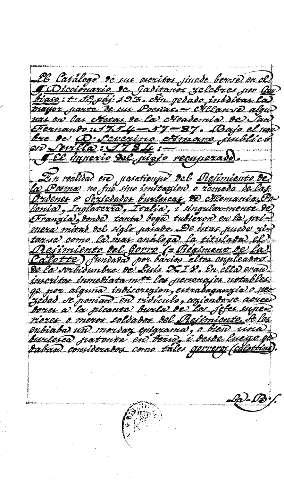 El Catálogo de sus escritos puede verse en el
Diccionario de Gaditanos celebres por Cam-
biaso: t. 1º, pág. 153. Han quedado inéditas la
mayor parte de sus Poesías. Hállanse algu-
nas en las Actas de la Academia de San
Fernando: 1754-57-87. Bajo el nom-
bre de D. Severino Amaro publicó
en Sevilla: 1784:
El imperio del piojo recuperado.
En realidad este pasatiempo del Regimiento de
la Posma no fué sino imitacion o remedo de las
Ordenes o Sociedades burlescas de Alemania, Po-
lonia, Inglaterra, Italia, i singularmente de
Francia, donde tanta boga tubieron en la pri-
mera mitad del siglo pasado. De estas, puede ci-
tarse como la mas análoga la titulada le
Régiment de la
Calotte, fundada por varios
de la servidumbre de Luis XIV. En ella eran
inscritos inmediatamte. los personajes notables
qe. por alguna indiscrecion, extravagancia o ne-
cedad se ponian en ridículo, haciendose acree-
dores a la picante burla de los jefes supe-
riores o meros soldados del Regimiento. Se les
enbiaba un mordaz epigrama, o bien una
burlesca patente en verso, i desde luego que-
daban considerados como tales